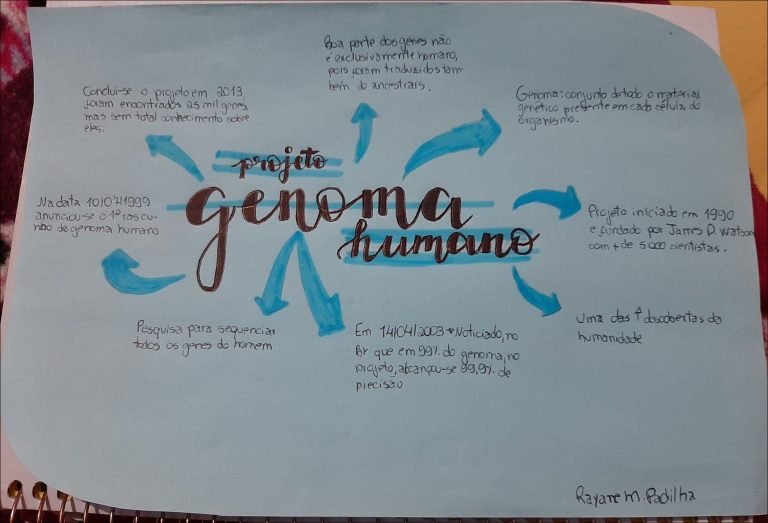 Boa parte dos genes não
é exclusivamente humano,
pois foram traduzidos tam-
bem do ancestrais.
Conclui-se o projeto em 2013
foram encontrados 25 mil genes
mas sem total conhecimento sobre
eles.
Genoma: conjunto de todo o material
genético presente em cada célula do
organismo.
projeto
genoma
humano
Na data 10/07/1999
anunciou-se o 1º rascu-
nho de genoma humano
Projeto iniciado em 1990
e fundado por James D. Watson
com + de 5000 cientistas.
Pesquisa para sequenciar
todos os genes do homem
Em 14/04/2003 Noticiado, no
Br que em 99% do genoma, no
projeto, alcançou-se 99,9% de
precisão
Uma das ↑ descobertas da
humanidade
Rayane M. Padilha